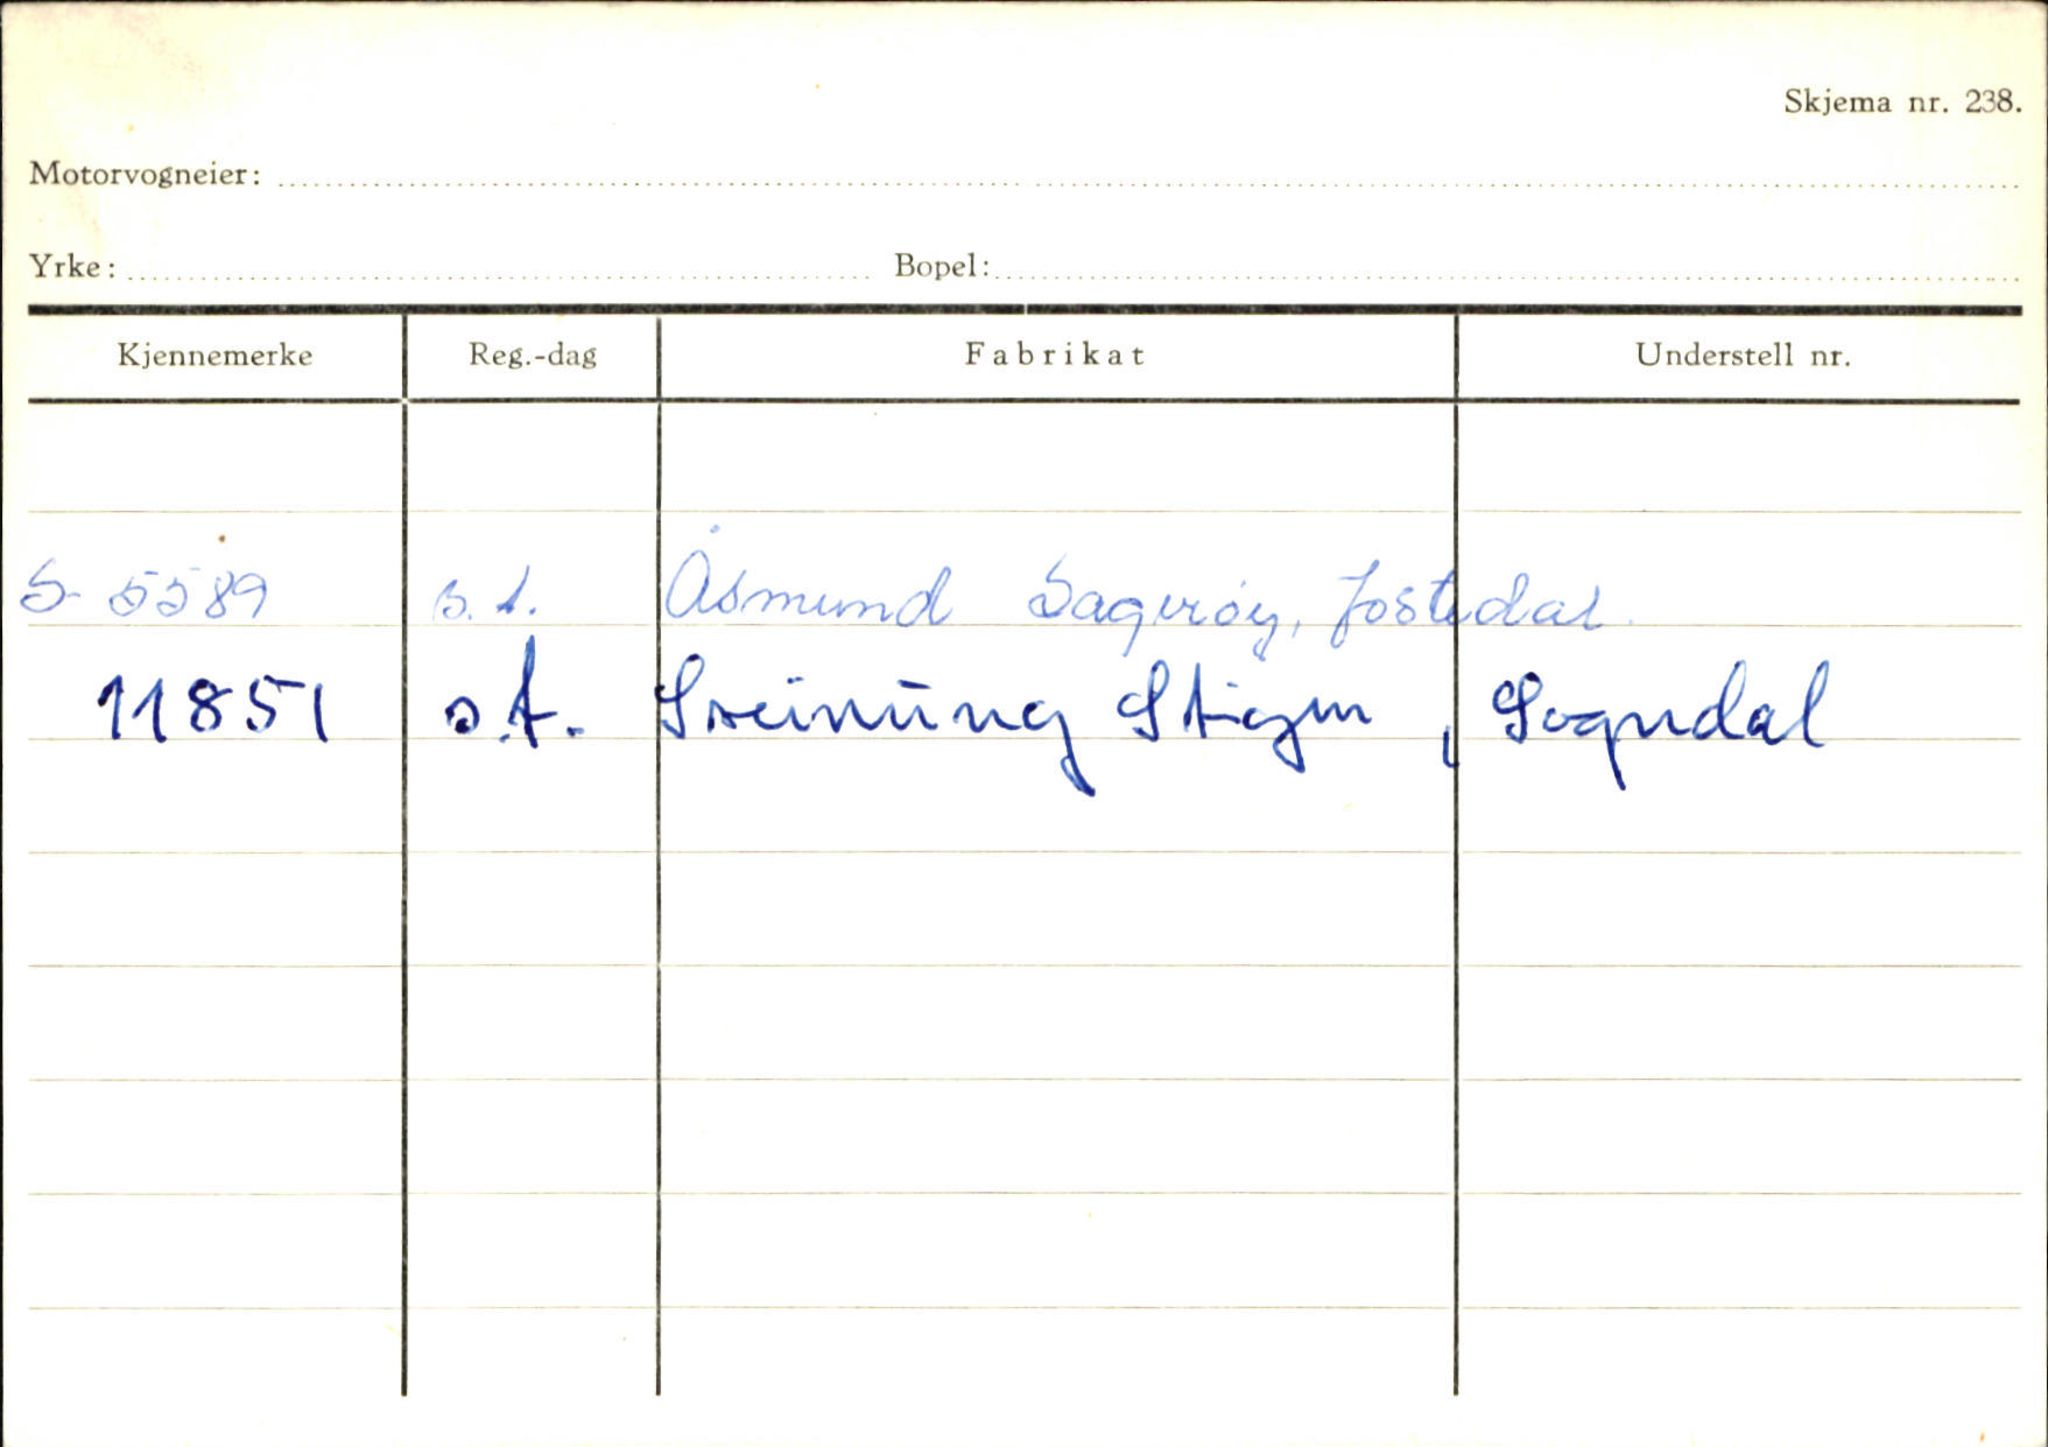 Skjema nr. 238.
Motorvogneier:
Yrke: Bopel:
Kjennemerke Reg.-dag Fabrikat Understell nr.
S- 5589 s.t. Åsmund Sagerøy, Jostedal.
11851 s.t. Steinung Stigen, Sogndal